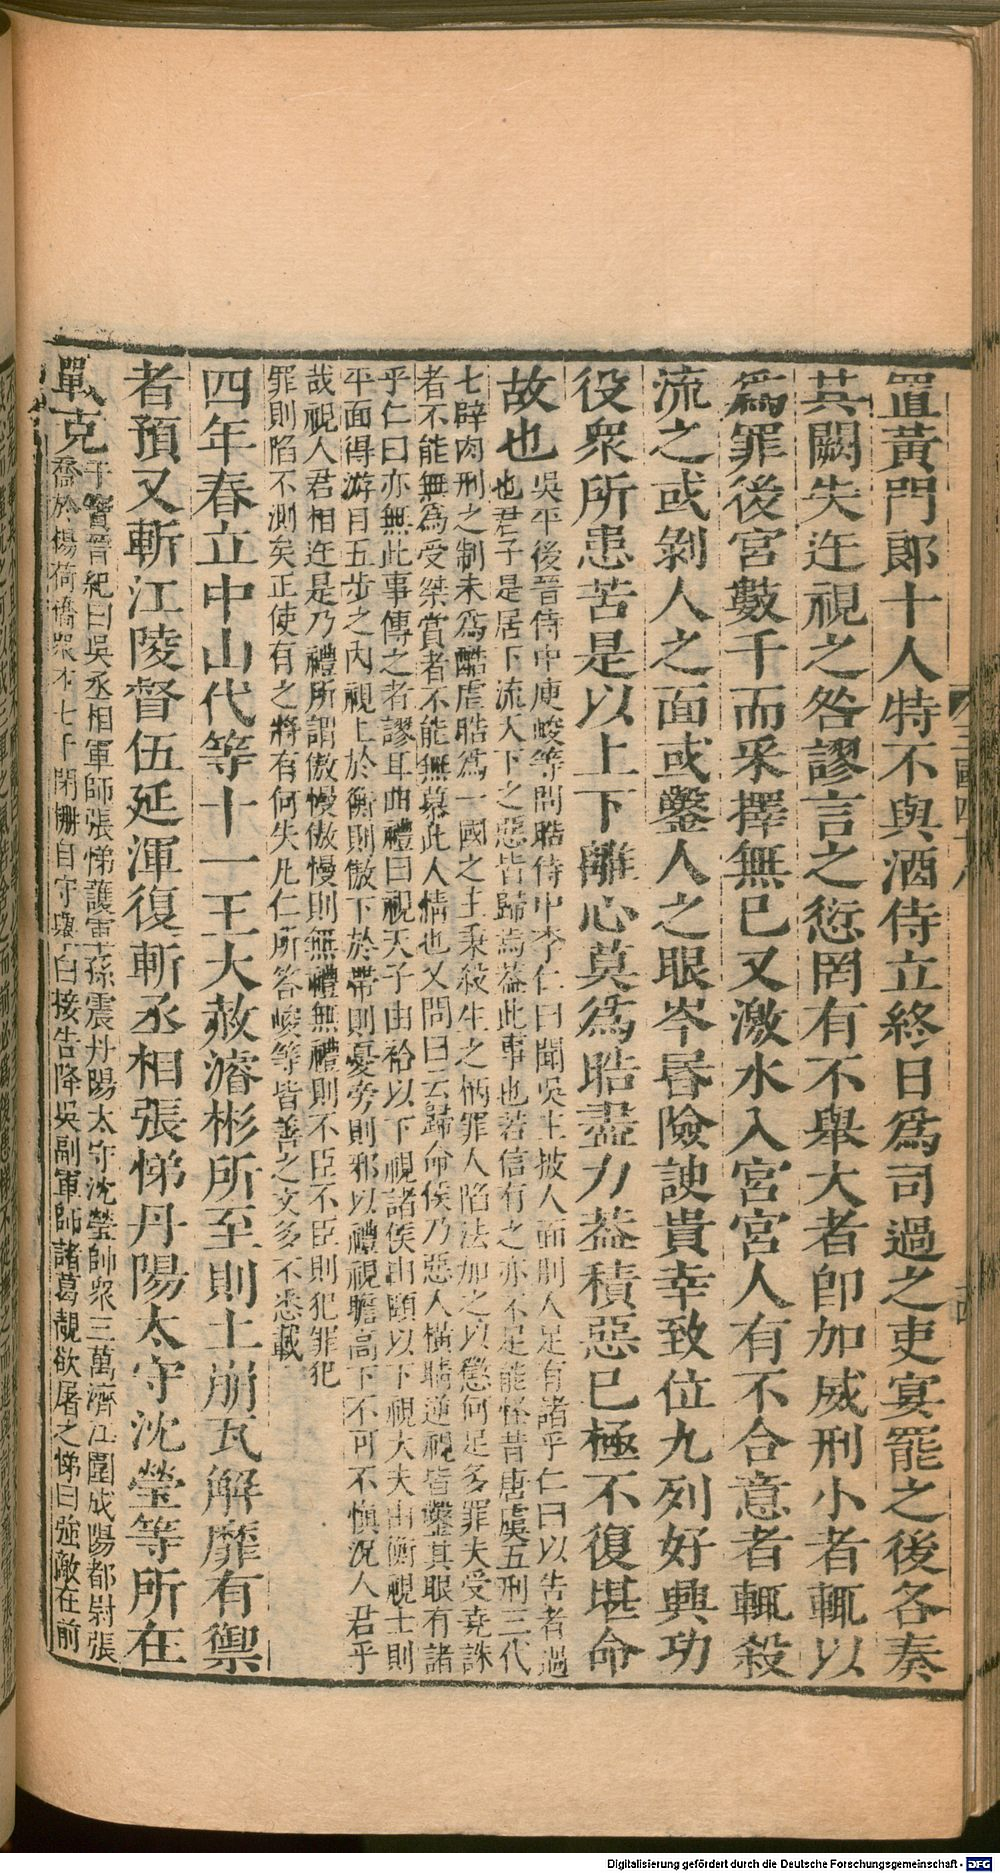 置黃門郎十人特不與酒侍立終日爲司過之吏宴罷之後各奏
其闕失迕視之咎謬言之愆罔有不舉大者卽加威刑小者輒以
爲罪後宮數千而采擇無已又激水入宮宮人有不合意者輒殺
流之或剝人之面或鑿人之眼岑昬險諛貴幸致位九列好興功
役衆所患苦是以上下離心莫爲晧盡力葢積惡已極不復堪命
故也
吳平後晉侍中庾峻等問晧侍中李仁曰聞吳主披人面刖人足有諸乎仁曰以告者過
也君子是居下流天下之惡皆歸焉葢此事也若信有之亦不足能怪昔唐虞五刑三代
七辟肉刑之制未爲酷虐晧爲一國之主秉殺生之柄罪人陷法加之以懲何足多罪夫受堯誅
者不能無怨受桀賞者不能無慕此人情也又問曰云歸命侯乃惡人橫睛逆視皆鑿其眼有諸
乎仁曰亦無此事傳之者謬耳曲禮曰視天子由袷以下視諸侯由頤以下視大夫由衡視士則
平面得游目五步之內視上於衡則傲下於帶則憂旁則邪以禮視瞻高下不可不愼況人君乎
哉視人君相迕是乃禮所謂傲慢傲慢則無禮無禮則不臣不臣則犯罪犯
罪則陷不測矣正使有之將有何失凡仁所答峻等皆善之文多不悉載
四年春立中山代等十一王大赦濬彬所至則土崩瓦解靡有禦
者預又斬江陵督伍延渾復斬丞相張悌丹陽太守沈瑩等所在
戰克
干寶晉紀曰吳丞相軍師張悌護軍孫震丹陽太守沈瑩帥衆三萬濟江圍成陽都尉張
喬於楊荷橋衆才七千閉柵自守舉白接告降吳副軍師諸葛靚欲屠之悌曰強敵在前
三國四十八
十四
Digitalisierung gefördert durch die Deutsche Forschungsgemeinschaft - DFG